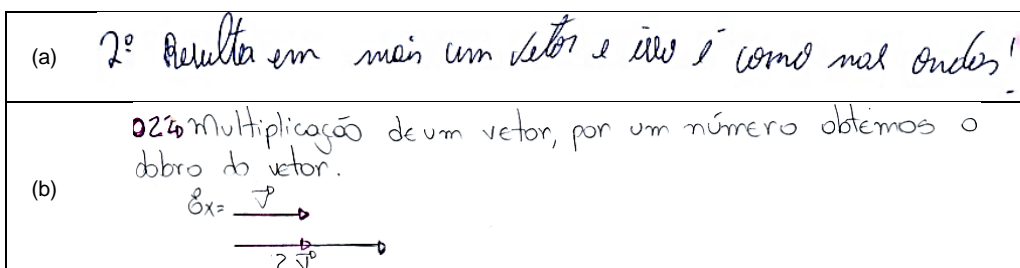 (a) 2º Resulta em mais um vetor e isso é como nas ondas!
(b)
02ª Multiplicação de um vetor, por um número obtemos o
dobro do vetor.
Ex= v
2 v